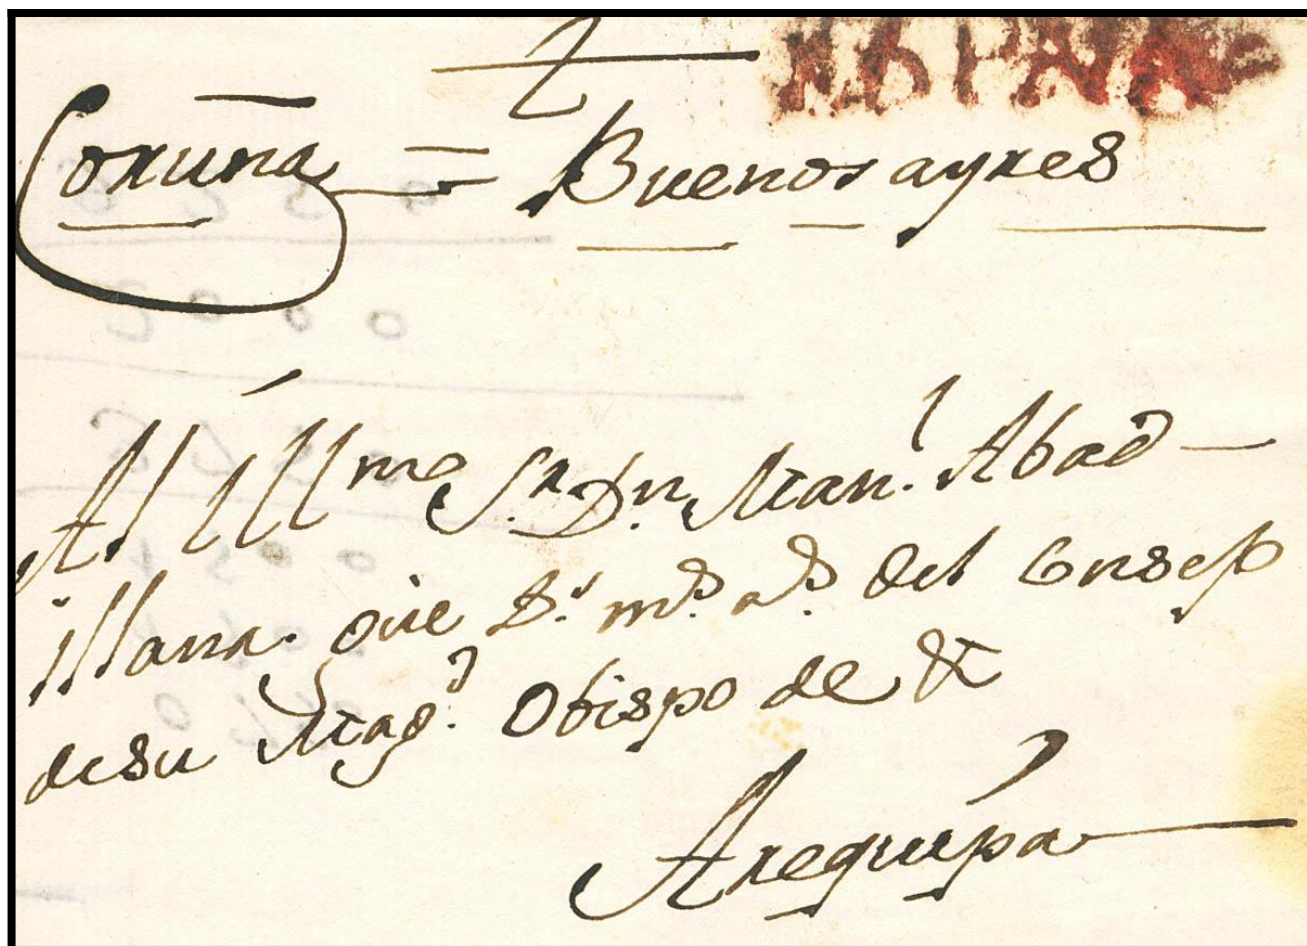 ESPAÑA
Coruña = Buenos ayres
Al Illmo Sr. Dn. Man.l Abad
illana que D.s m.s a.s del Consejo
desu Mag.d Obispo de &
Arequipa